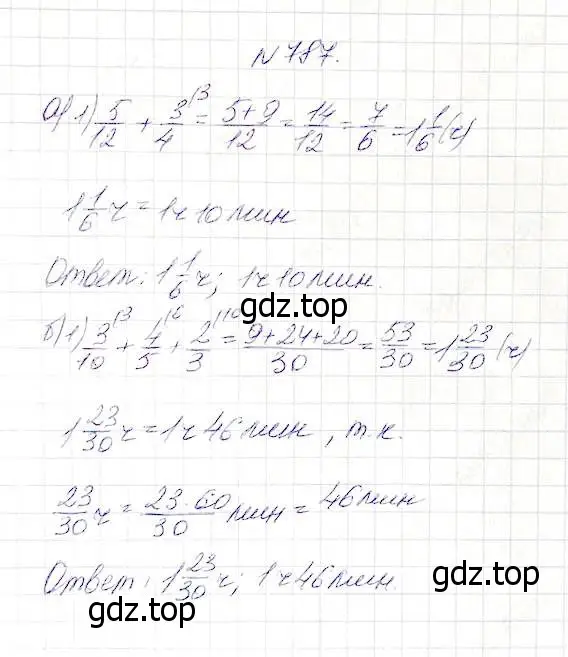 N 787.
а) 1) 5/12 + 3/4 \3 = 5+9/12 = 14/12 = 7/6 = 1 1/6 (ч)
1 1/6 ч = 1ч 10 мин
Ответ: 1 1/6 ч; 1ч 10 мин.
gdz.top
б) 1) 3/10 \3 + 4/5 \6 + 2/3 \10 = 9+24+20/30 = 53/30 = 1 23/30 (ч)
gdz.top
1 23/30 ч = 1ч 46 мин, т.к.
23/30 ч = 23·60/30 мин = 46 мин
gdz.top
Ответ: 1 23/30 ч; 1ч 46 мин.
gdz.top gdz.top